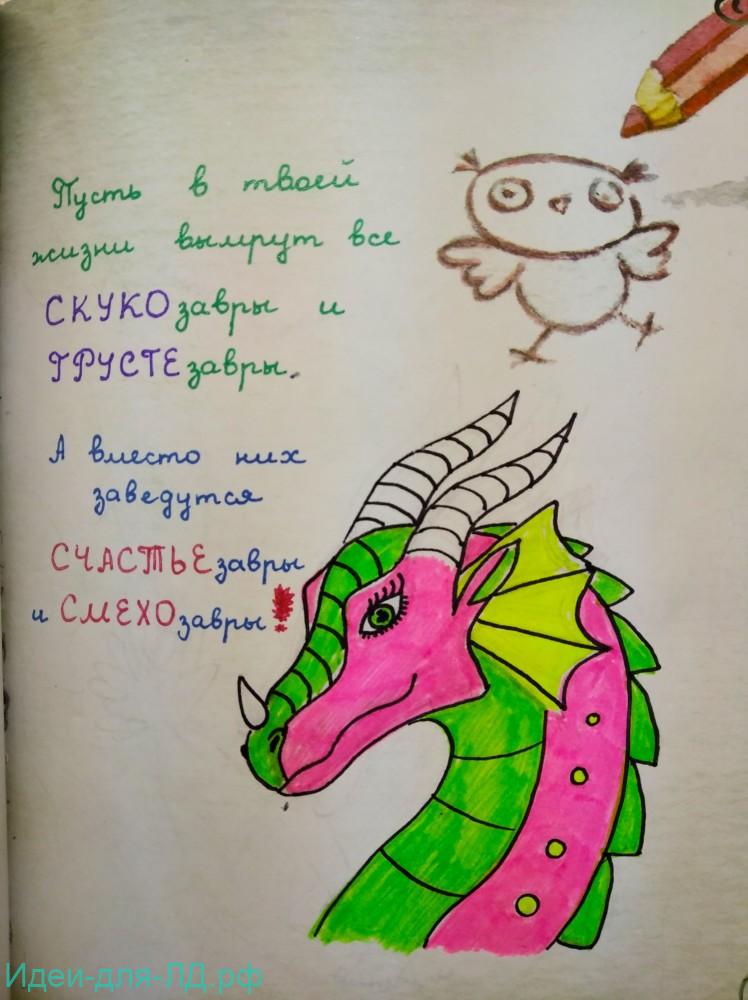 Пусть в твоей
жизни вымрут все
СКУКОзавры и
ГРУСТЕзавры.
А вместо них
заведутся
СЧАСТЬЕзавры
и СМЕХОзавры!
Идеи-для-ЛД.рф